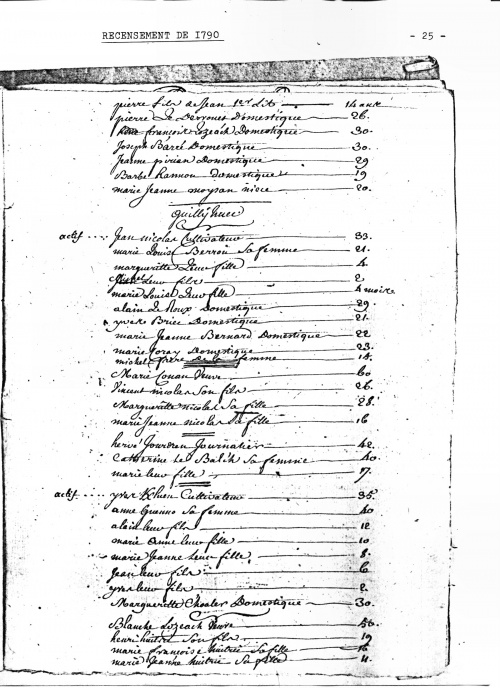 RECENSEMENT DE 1790 - 25 -
pierre fils de Jean 1er lit 14 ans
pierre Le Derrouet Domestique 26.
françoise Lozeach Domestique 30.
Joseph Barré Domestique 30.
Jeanne pirian Domestique 29
Barbe hamon Domestique 19
marie Jeanne moysan niece 20.
quillyhuec
actif Jean nicolas Cultivateur 33.
marie Louise Berrou Sa femme 21.
margueritte Leur fille 4.
Leur fils 2
marie Louise Leur fille 4 mois
alain Le Roux Domestique 29.
yves Briec Domestique 21.
marie Jeanne Bernard Domestique 22
marie Domestique 23.
michel frere de la femme 14.
Marie Conan veuve 60
Vincent nicolas Son fils 26.
Margueritte nicolas Sa fille 28.
marie Jeanne nicolas Sa fille 16
hervé Jourdren Journalier 42.
Catherine Le Sa femme 40.
marie leur fille 17.
actif yves Cultivateur 35.
anne Sa femme 40
alain leur fils 12
marie anne leur fille 10
marie Jeanne Leur fille 8.
Jean leur fils 6.
yves leur fils 2.
Margueritte Domestique 30.
Blanche Lozeach veuve 56.
henri huitric Son fils 19
marie françoise huitric Sa fille 16
marie Jeanne huitric Sa fille 11.